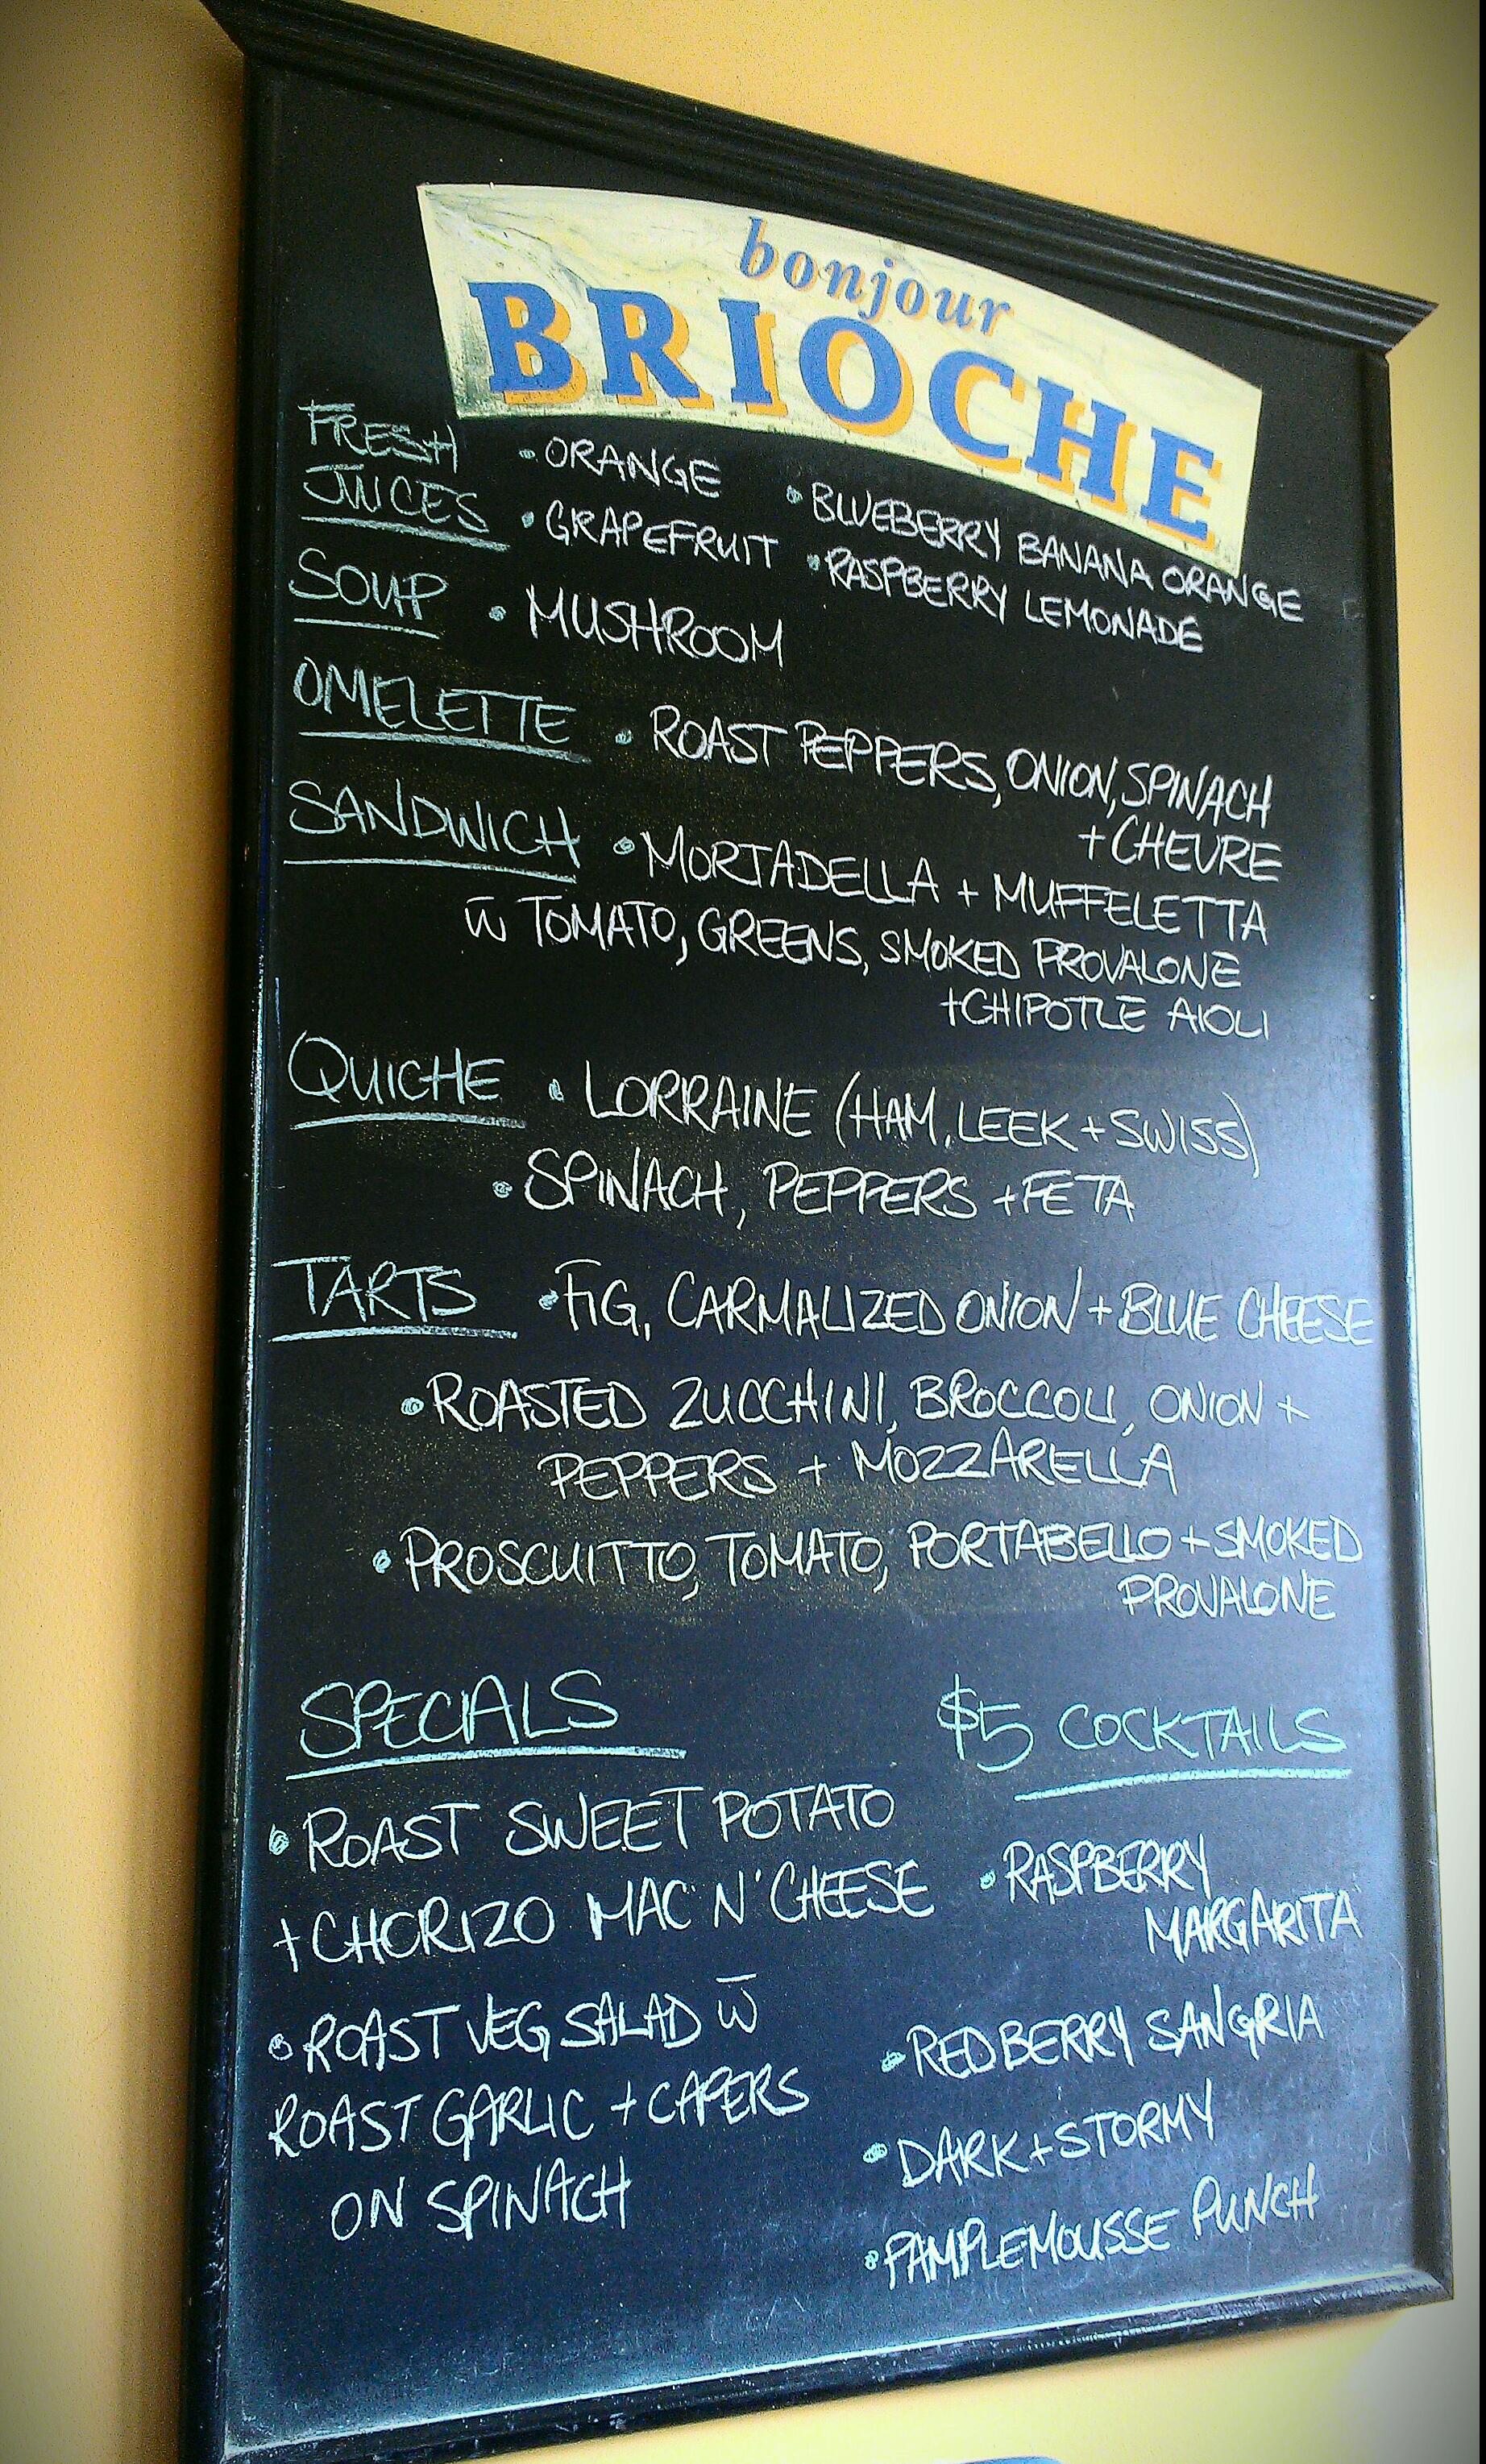 bonjour
BRIOCHE
FRESH
JUICES
• ORANGE • BLUEBERRY BANANA ORANGE
• GRAPEFRUIT • RASPBERRY LEMONADE
SOUP • MUSHROOM
OMELETTE • ROAST PEPPERS, ONION, SPINACH
+ CHEVRE
SANDWICH • MORTADELLA + MUFFELETTA
w̅ TOMATO, GREENS, SMOKED PROVALONE
+ CHIPOTLE AIOLI
QUICHE • LORRAINE (HAM, LEEK + SWISS)
• SPINACH, PEPPERS + FETA
TARTS • FIG, CARMALIZED ONION + BLUE CHEESE
• ROASTED ZUCCHINI, BROCCOLI, ONION +
PEPPERS + MOZZARELLA
• PROSCUITTO, TOMATO, PORTABELLO + SMOKED
PROVALONE
SPECIALS
• ROAST SWEET POTATO
+ CHORIZO MAC 'N' CHEESE
• ROAST VEG SALAD w̅
ROAST GARLIC + CAPERS
ON SPINACH
$5 COCKTAILS
• RASPBERRY
MARGARITA
• RED BERRY SANGRIA
• DARK + STORMY
• PAMPLEMOUSSE PUNCH